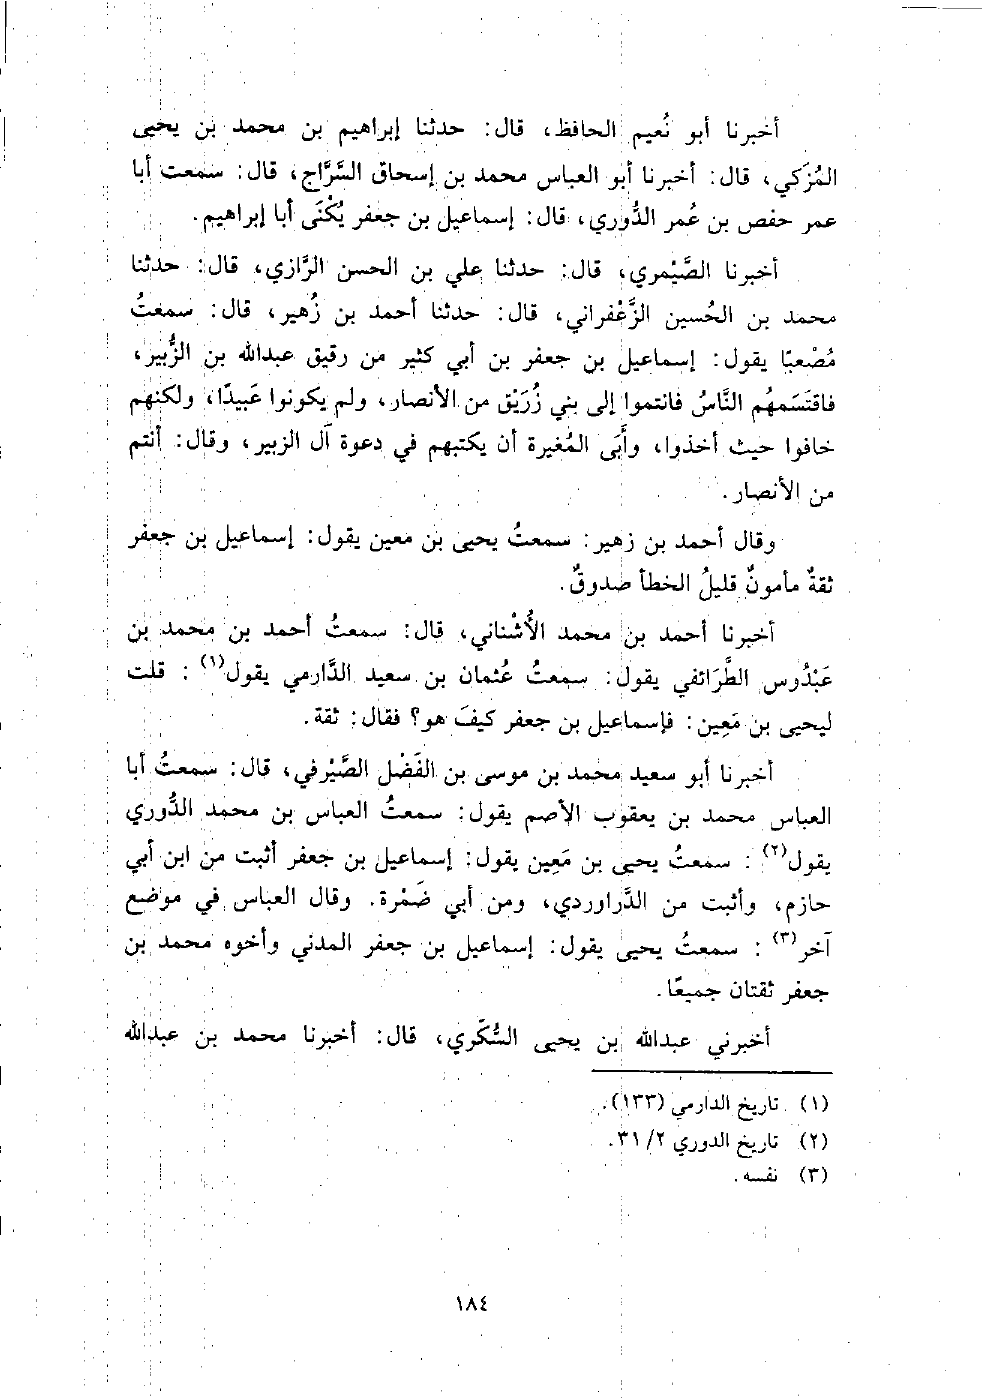 أخبرنا أبو نُعيم الحافظ، قال: حدثنا إبراهيم بن محمد بن يحيى
المُزَكي، قال: أخبرنا أبو العباس محمد بن إسحاق السَّرَّاج، قال: سمعت أبا
عمر حفص بن عُمر الدُّوري، قال: إسماعيل بن جعفر يُكْنَى أبا إبراهيم.
أخبرنا الصَّيْمري، قال: حدثنا علي بن الحسن الرَّازي، قال: حدثنا
محمد بن الحُسين الزَّعْفراني، قال: حدثنا أحمد بن زُهير، قال: سمعتُ
مُصْعبًا يقول: إسماعيل بن جعفر بن أبي كثير من رقيق عبدالله بن الزُّبير،
فاقتَسَمهُم النَّاسُ فانتموا إلى بني زُرَيْق من الأنصار، ولم يكونوا عَبيدًا، ولكنهم
خافوا حيث أخذوا، وأَبَى المُغيرة أن يكتبهم في دعوة آل الزبير، وقال: أنتم
من الأنصار.
وقال أحمد بن زهير: سمعتُ يحيى بن معين يقول: إسماعيل بن جعفر
ثقةٌ مأمونٌ قليلُ الخطأ صدوقٌ.
أخبرنا أحمد بن محمد الأُشْناني، قال: سمعتُ أحمد بن محمد بن
عَبْدُوس الطَّرَائفي يقول: سمعتُ عُثمان بن سعيد الدَّارمي يقول(١): قلت
ليحيى بن مَعِين: فإسماعيل بن جعفر كيفَ هو؟ فقال: ثقة.
أخبرنا أبو سعيد محمد بن موسى بن الفَضْل الصَّيْرفي، قال: سمعتُ أبا
العباس محمد بن يعقوب الأصم يقول: سمعتُ العباس بن محمد الدُّوري
يقول(٢): سمعتُ يحيى بن مَعِين يقول: إسماعيل بن جعفر أثبت من ابن أبي
حازم، وأثبت من الدَّراوردي، ومن أبي ضَمْرة. وقال العباس في موضع
آخر(٣): سمعتُ يحيى يقول: إسماعيل بن جعفر المدني وأخوه محمد بن
جعفر ثقتان جميعًا.
أخبرني عبدالله بن يحيى السُّكَّري، قال: أخبرنا محمد بن عبدالله
(١) تاريخ الدارمي (١٣٣).
(٢) تاريخ الدوري ٢/ ٣١.
(٣) نفسه.
١٨٤